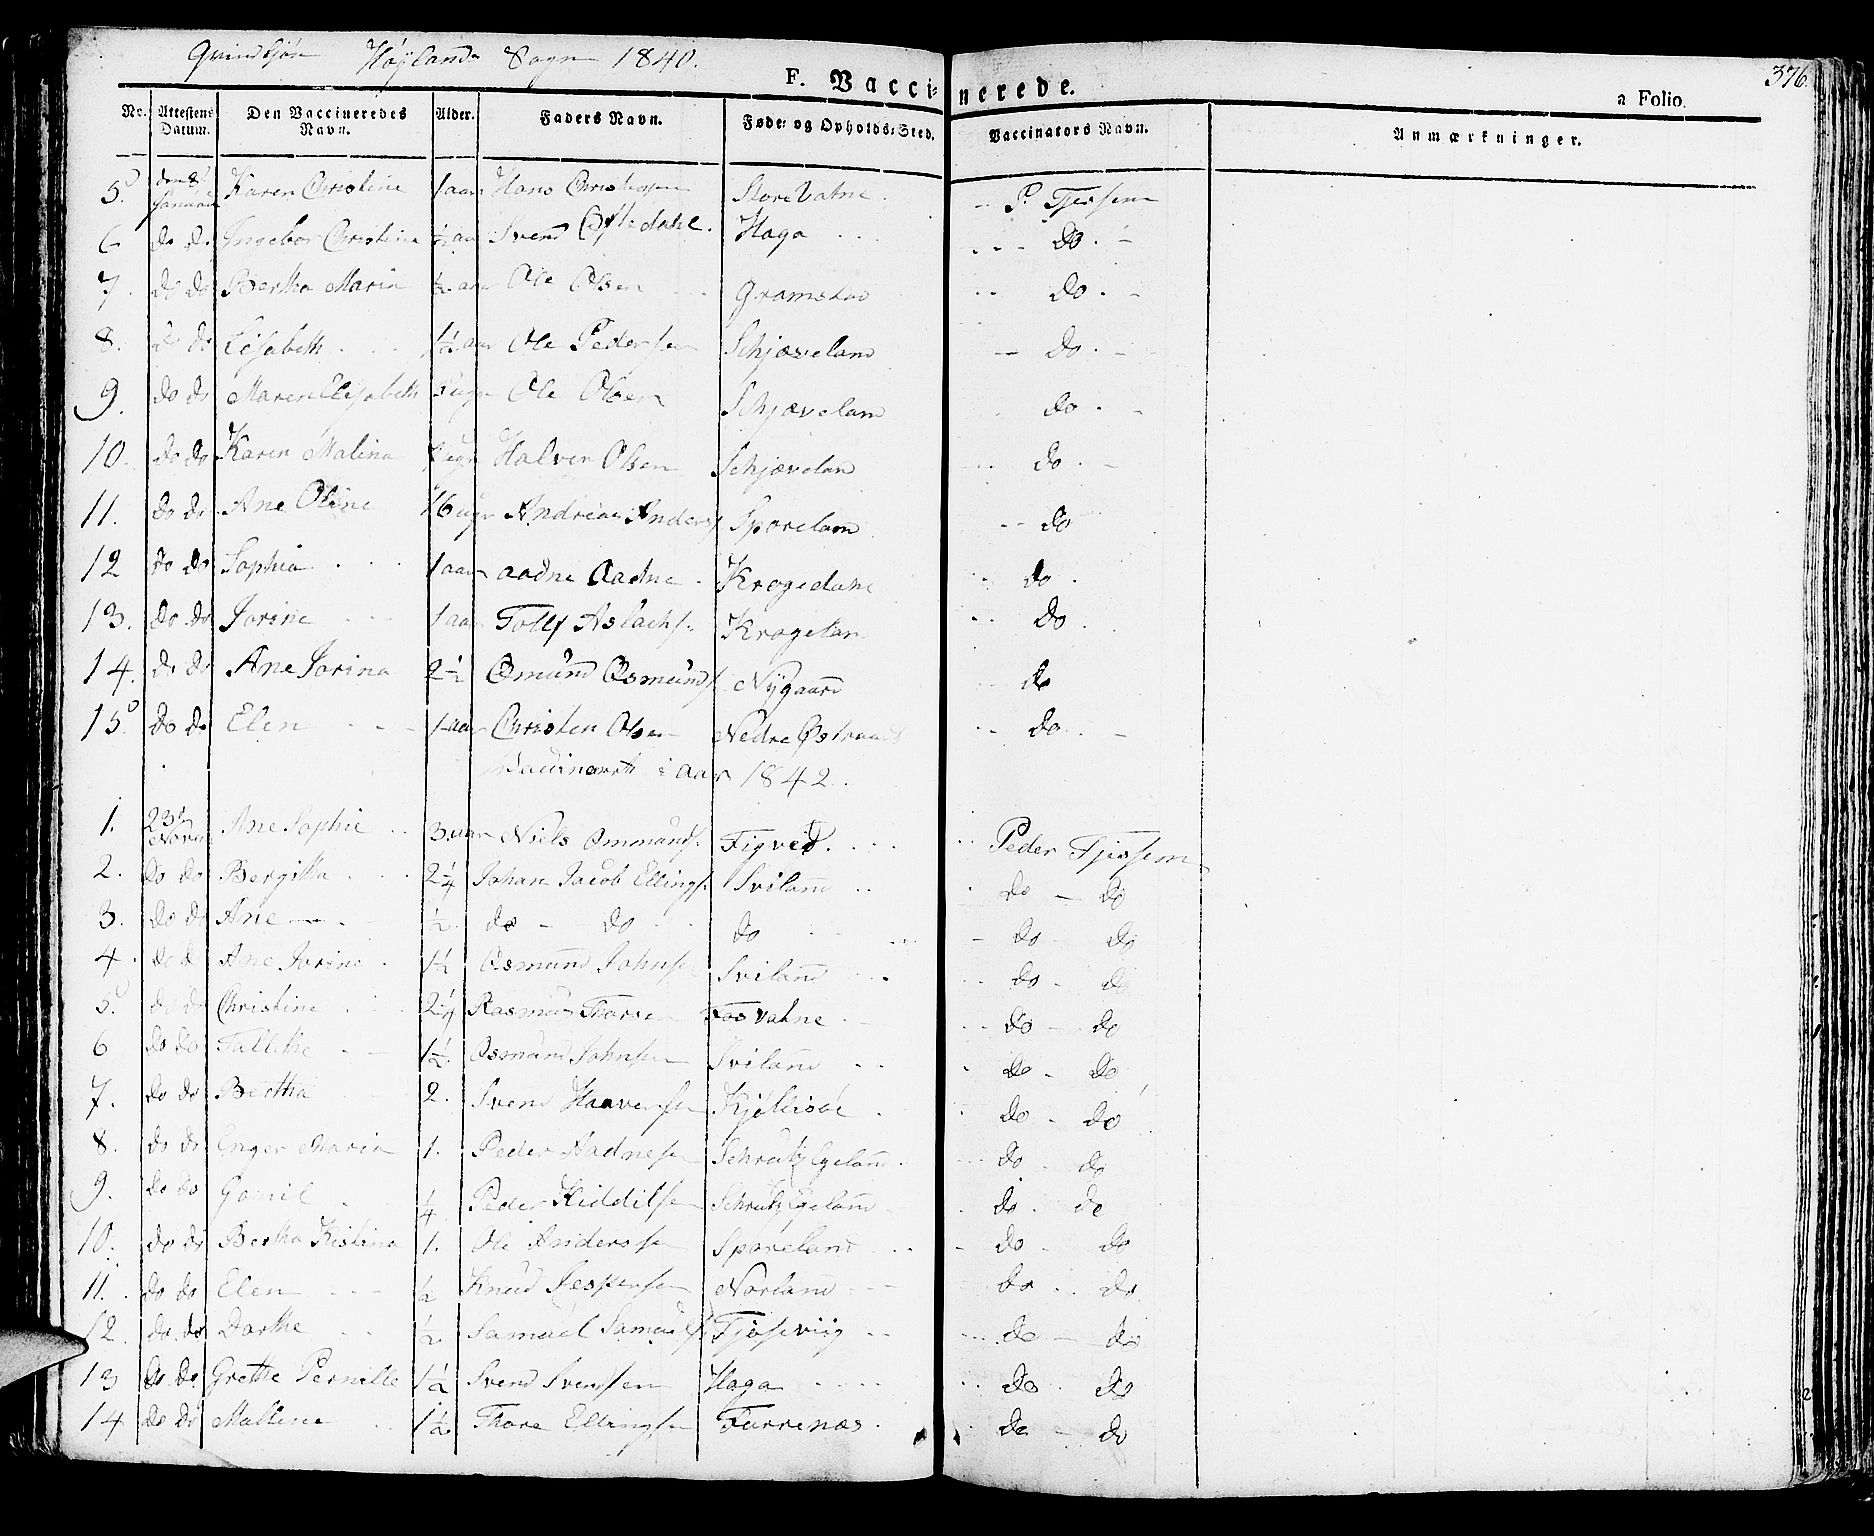 Qvindkjön Höylands Sogn 1840.
F. Vaccinerede.
376.
a Folio.
No. Attestens Datum. Den Vaccineredes Navn. Alder. Faders Navn. Føde- og Opholds-Sted. Vaccinators Navn. Anmærkninger.
5 den 8d Januari Karen Christine 1 aar Hans Christensen Store Vatne P. Tjessem
6 do do Ingebor Christine ½ aar Svend Haga do
7. do do Bertha Maria ½ aar Ole Olsen Gramstad do
8. do do Lisabeth 1½ aar Ole Pedersen Schjæveland do
9. do do Maren Elisabeth ugr Ole Olsen Schjæveland do
10. do do Karen Malina ugr Halver Olsen Schjæveland do
11. do do Ane Oline 16 ugr Andreas Anders Sporeland do
12 do do Sophia 1 aar Aadne Aadne Krogedahl do
13. do do Jorine 1 aar Tollf Aslachs. Krogelan do
14. do do Ane Jorina 2½ Osmund Osmunds Nÿgaard do
15 do do Elen 1 aar Christen Olsen Nedre Østraad do
Vaccinerett i aar 1842.
1. 23d Novem Ane Sophie 3 aar Niels Ommunds. Figved Peder Tjessem
2. do do Bergitta 2¼ Johan Jacob Ellings. Sviland do do
3. do do Ane ½ do do do do do
4. do do Ane Jorine 1½ Osmund Johnsen Sviland do do
5. do do Christine 2¼ Rasmus Thorsen Fos Vatne do do
6 do do Tallethe 1½ Osmund Johnsen Sviland do do
7. do do Bertha 2. Svend Haaversen Kjölleröe do do
8. do do Enger Maria 1. Peder Aadnesen Schrutz Egeland do do
9. do do Gonil ¼ Peder Kiddilsen Schrutz Egeland do do
10. do do Bertha Kistina 1. Ole Anderssen Sporeland do do
11. do do Elen ½ Knud Jespersen Norland do do
12. do do Dorthe ½ Samuel Samuels Tjosevÿg do do
13 do do Grethe Pernille 1½ Svend Svendsen Haga do do
14 do do Mallene 1½ Thore Ellingsen Furrenæs do do